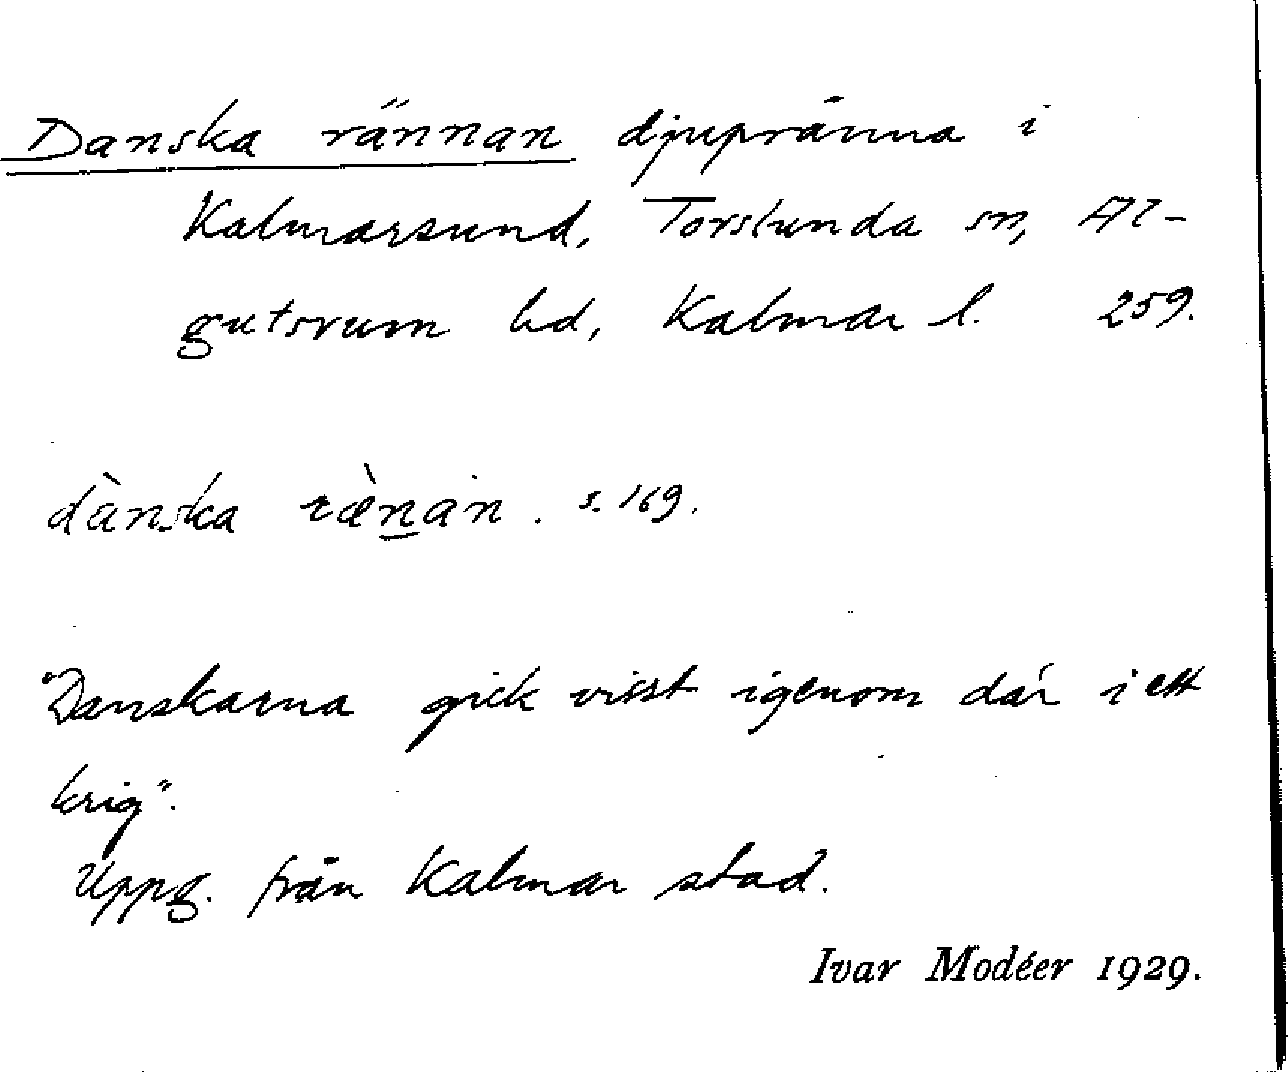 Danska rännan djupränna i
Kalmarsund, Torslunda sn, Al-
gutsrum hd, Kalmar l. 259.
dànska ræ̀nan. s. 169.
"Danskarna gick visst igenom där i ett
krig".
Uppg. från Kalmar stad.
Ivar Modéer 1929.